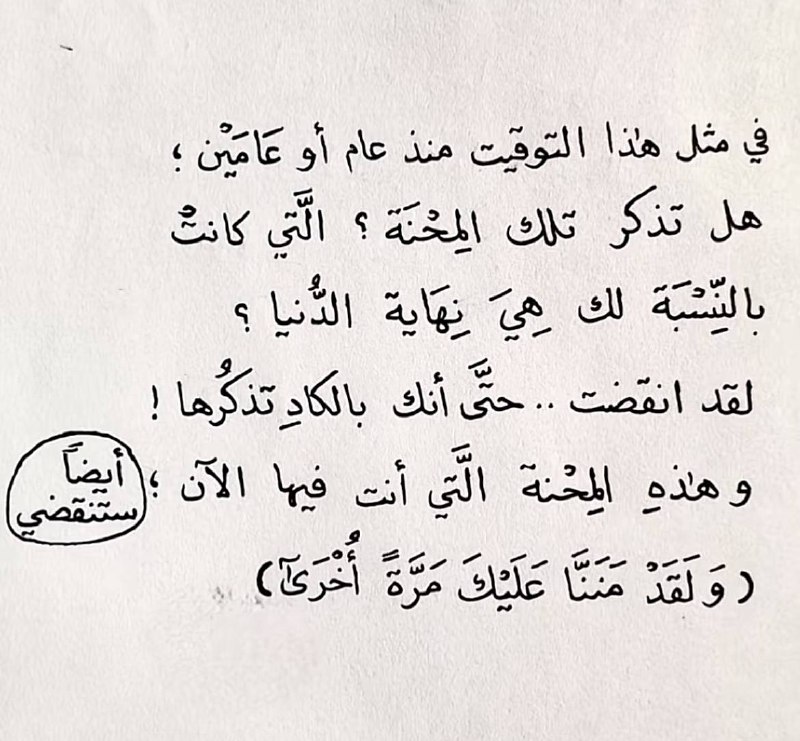 في مثل هٰذا التوقيت منذ عام أو عَامَيْن ؛
هل تذكر تلك المِحْنَة ؟ الَّتي كانتْ
بالنِّسْبَة لك هِيَ نِهَاية الدُّنيا ؟
لقد انقضت .. حتَّى أنك بالكادِ تذكُرها !
و هٰذهِ المِحْنة الَّتي أنت فيها الآن ؛
أيضاً
ستنقضي
( وَ لَقَدْ مَنَنَّا عَلَيْكَ مَرَّةً أُخْرَىٰٓ )